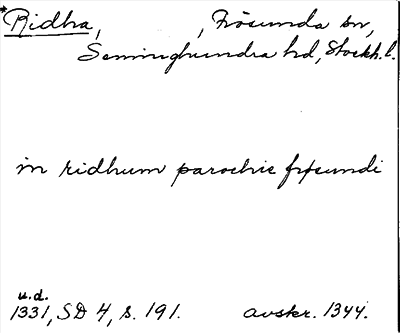 *Ridha, , Frösunda sn,
Seminghundra hd, Stockh. l.
in ridhum parochie frfsundi
u.d.
1331, SD 4, s. 191. avskr. 1344.